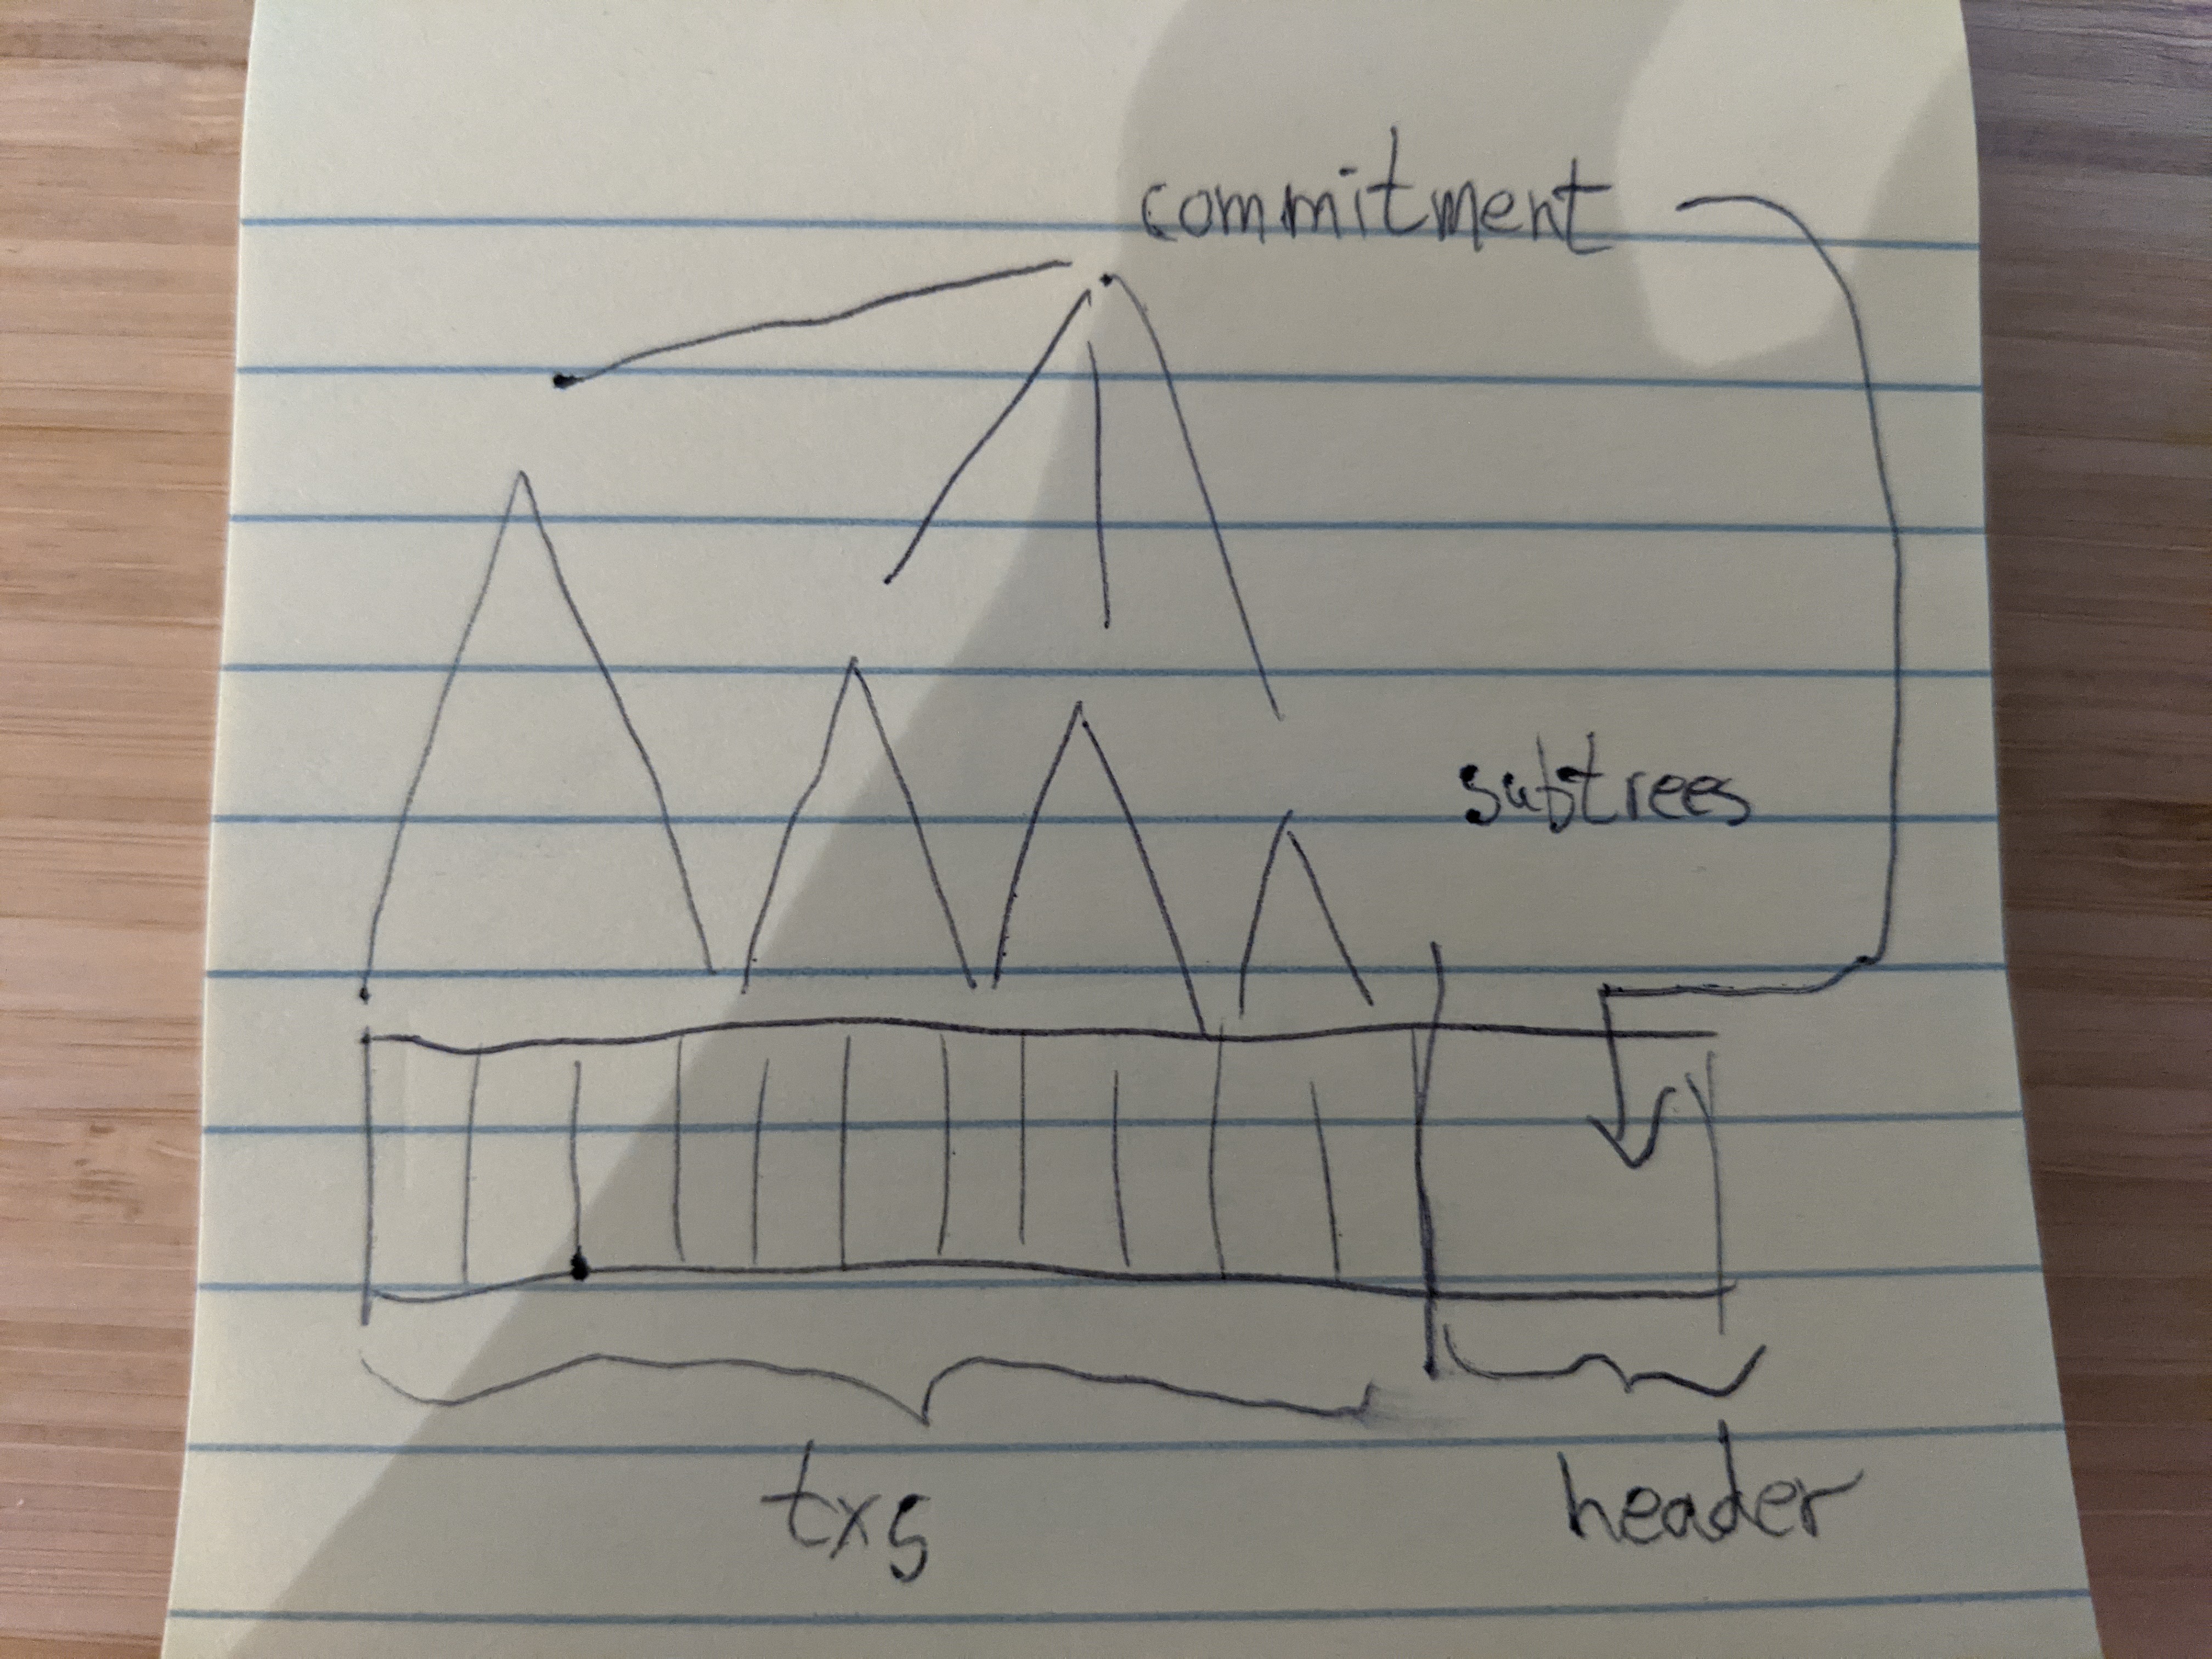 commitment
subtrees
txs
header